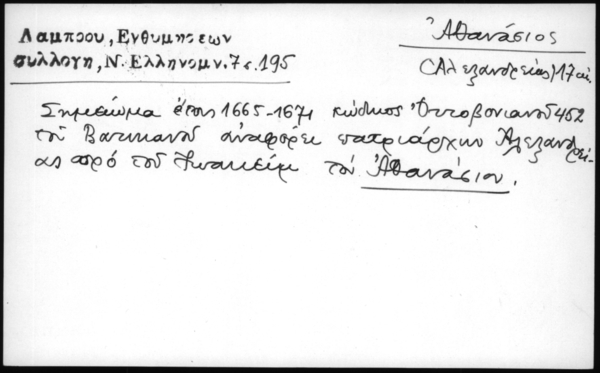 Λαμπρου, Ενθυμησεων
συλλογη, Ν. Ελληνομν. 7 σ. 195
Ἀθανάσιος
(Αλεξανδρείας) 17 αι.
Σημείωμα έτους 1665-1671 κώδικος Ὀττοβονιανοῦ 452
τοῦ Βατικανοῦ ἀναφέρει πατριάρχην Ἀλεξανδρεί-
ας πρό τοῦ Ἰωακείμ τόν Ἀθανάσιον.